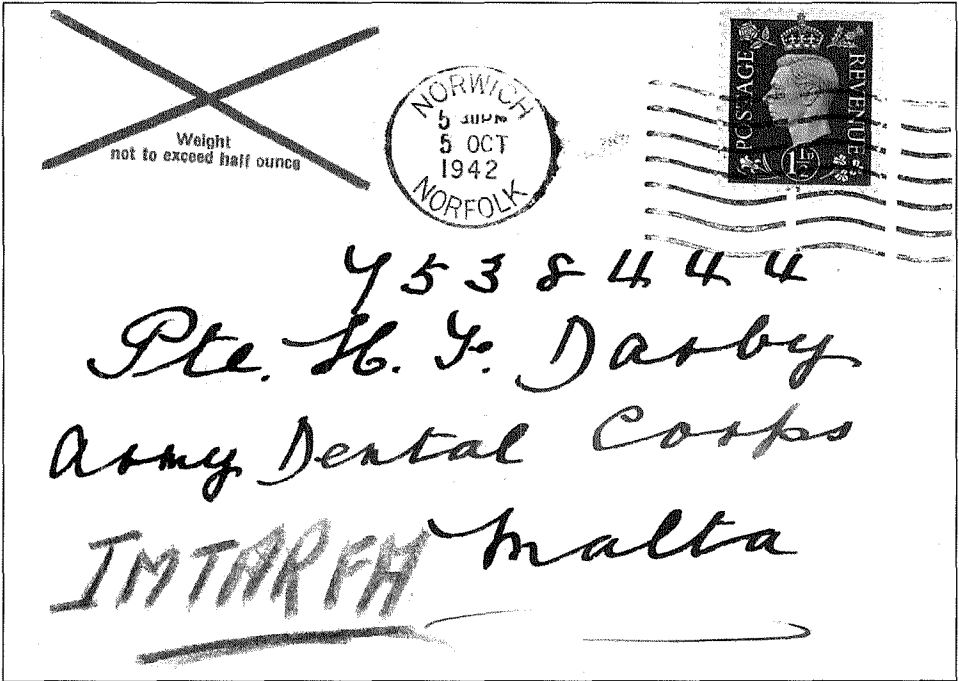 Weight
not to exceed half ounce
NORWICH
5 OCT
1942
NORFOLK
POSTAGE
REVENUE
1½D
7538444
Pte. H. F. Darby
Army Dental Corps
IMTARFA Malta